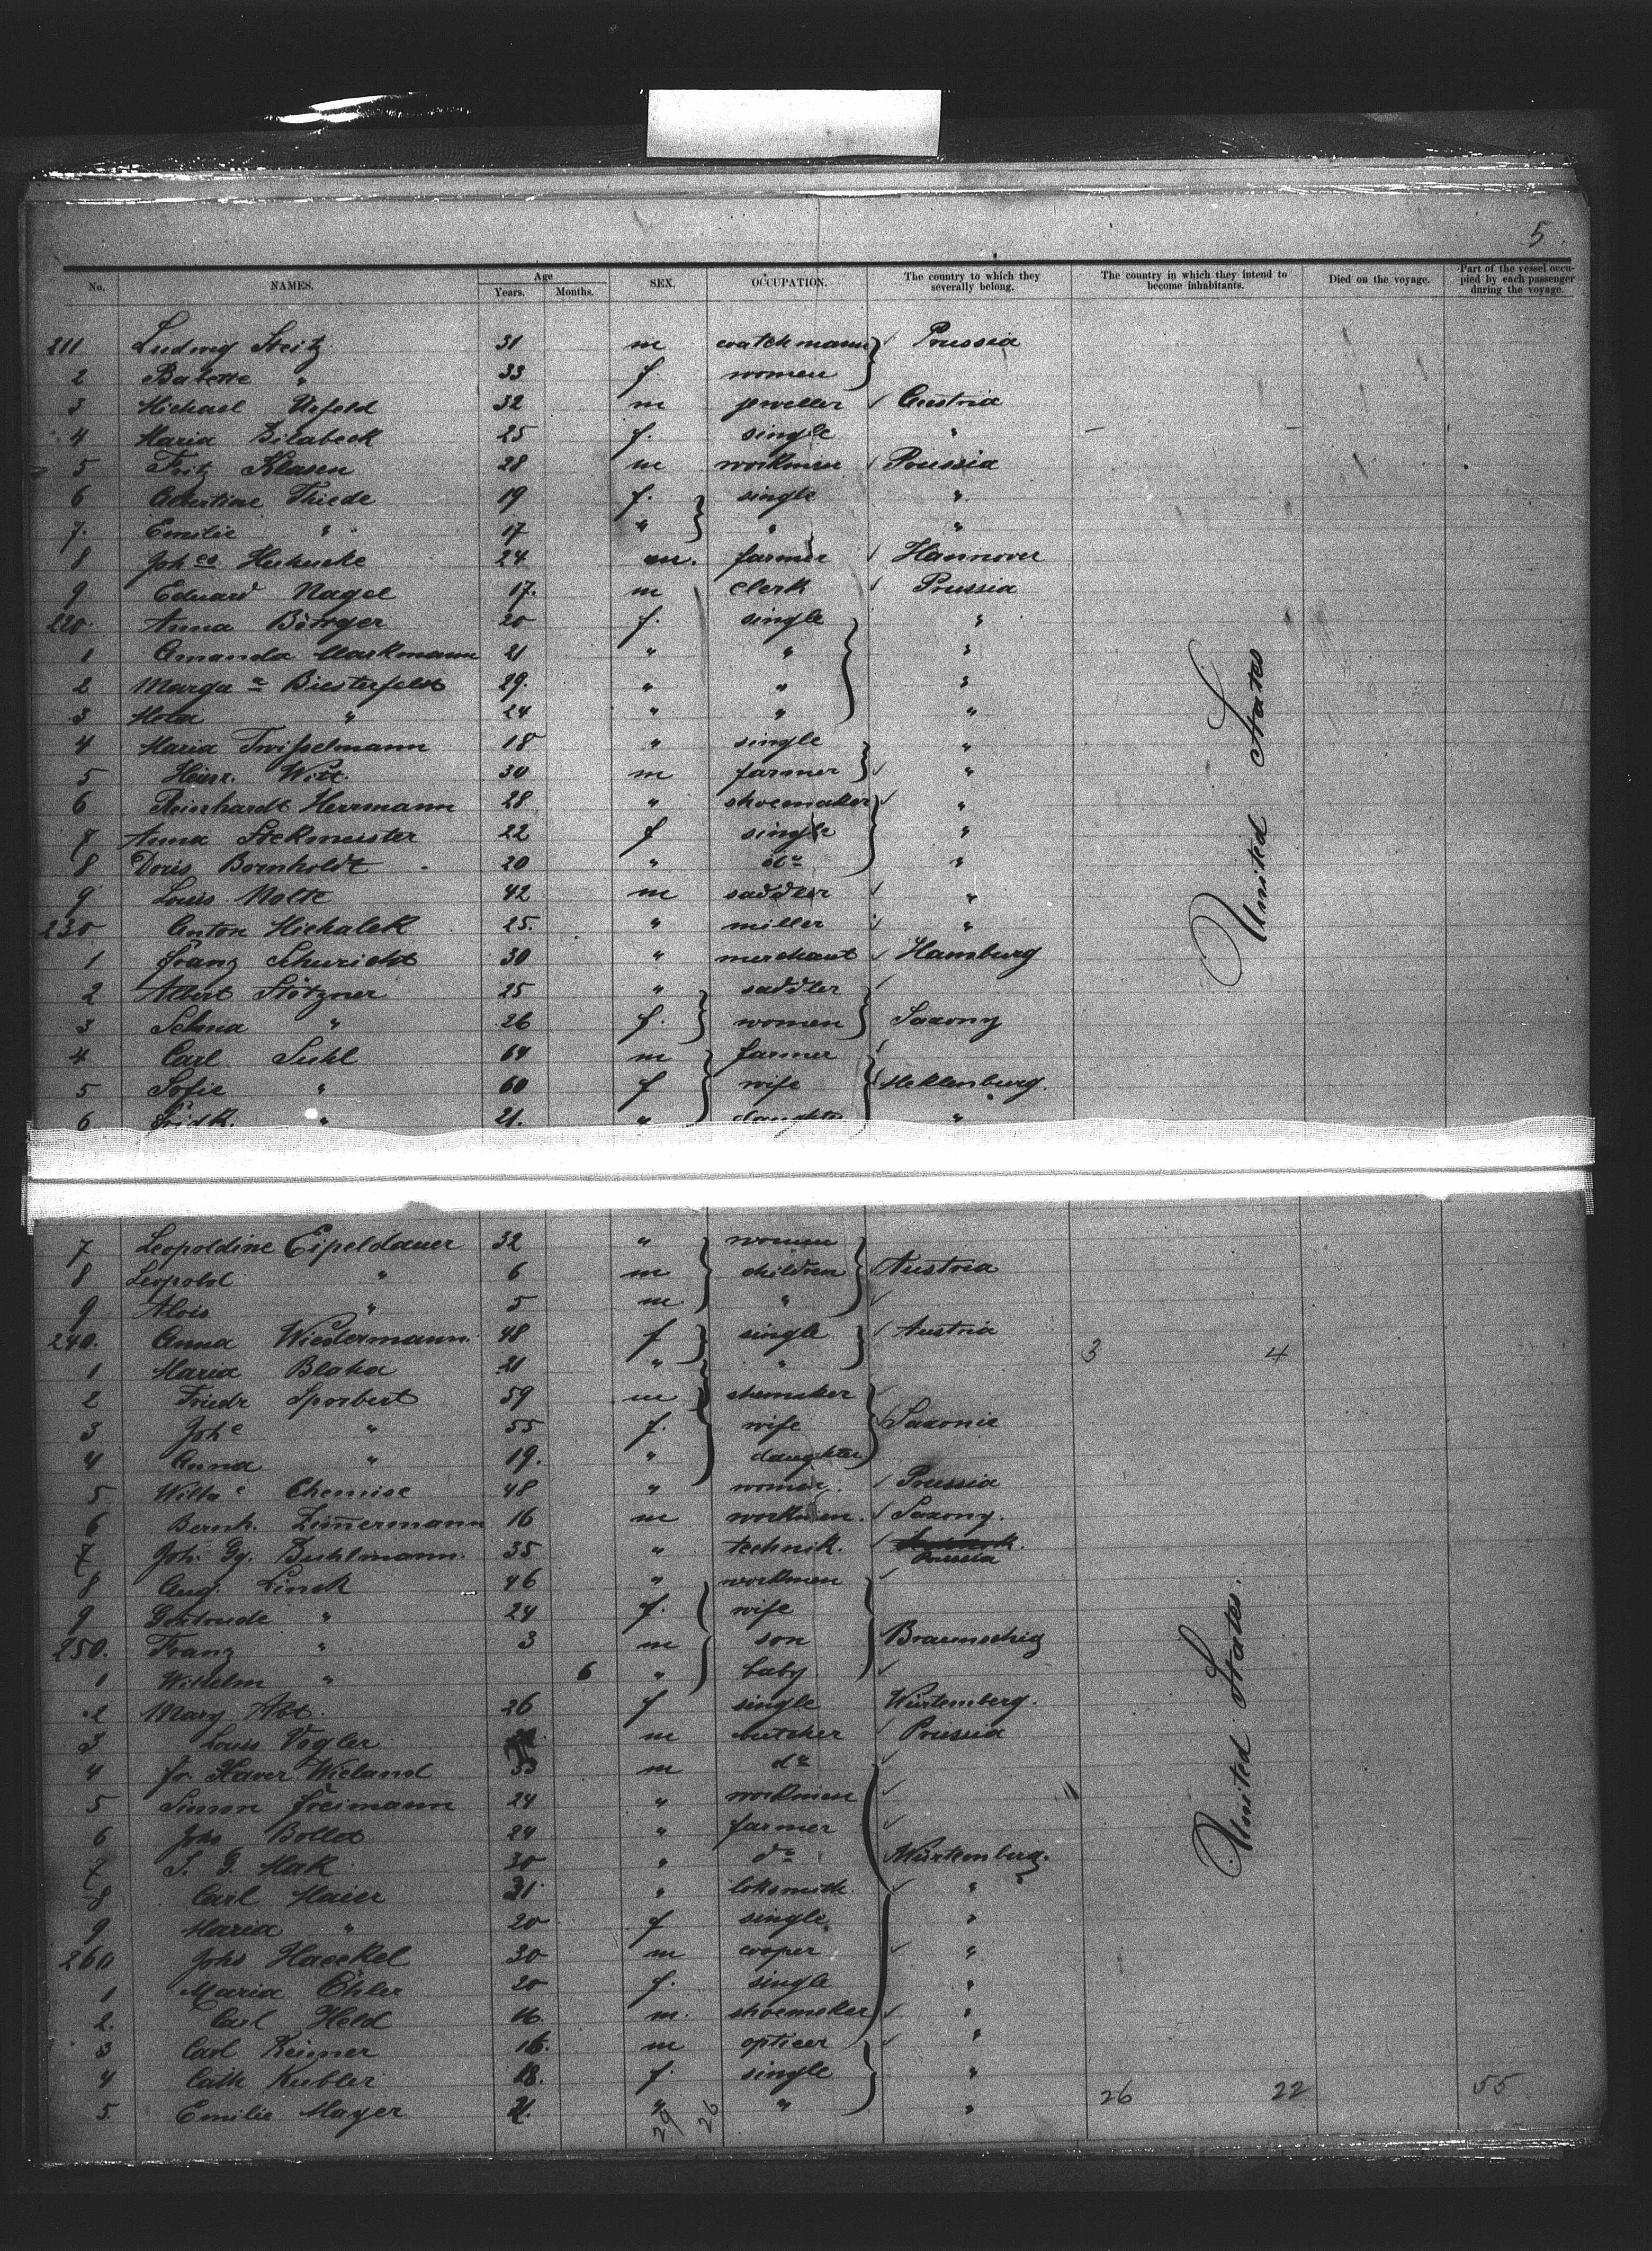 5
No. NAMES. Age Years. Months. SEX. OCCUPATION. The country to which they severally belong. The country in which they intend to become inhabitants. Died on the voyage. Part of the vessel occupied by each passenger during the voyage.
211 Ludwig Steitz 31 m watchmann Prussia
2 Babette " 33 f women
3 Michael Urfeld 32 m jeweller Austria
4 Maria Bilabeck 25 f. single "
5 Fritz Klasen 28 m workmen Prussia
6 Albertine Thiede 19 f. single "
7. Emilie " 17 " " "
8 Joh es 24 m. farmer Hannover
9 Eduard Nagel 17. m clerk Prussia
220. Anna Böttger 20 f. single "
1 Amanda Markmann 21 " " "
2 Marga a Biesterfeldt 29. " " "
3 " 24 " " "
4 Maria Twisselmann 18 " single "
5 Heinr. Witt. 30 m farmer "
6 Reinhardt Herrmann 28 " shoemaker "
7 Anna Stekmeister 22 f single "
8 Doris Bornholdt 20 " do "
9 Louis Nolte 42 m saddler "
230 Anton Michalek 25. " miller "
1 Franz Schuricht 30 " merchant Hamburg
2 Albert Stötzner 25 " saddler
3 Selma " 26 f. women Saxony
4 Carl Suhl 64 m farmer
5 Sofie " 60 f wife Meklenburg.
6 Fridk. " 21. " daughter "
United States
7 Leopoldine Eipeldauer 32 " women
8 Leopold " 6 m children Austria
9 Alois " 5 m "
240. Anna Wiedermann. 48 f single Austria
1 Maria Blaha 21 " " 3 4
2 Friedr Sporbert 59 m shemaker
3 Joh e " 55 f. wife Saxonie
4 Anna " 19. " daughter
5 Chemise 48 " women. Prussia
6 Bernh. Zimmermann 16 m workmen. Saxony.
7 Joh. Gg. Buhlmann. 35 " technik. Prussia
8 Aug. Linck 46 " workmen
9 Gertrude " 24 f. wife
250. Franz " 3 m son Braunschig
1 Wilhelm " 6 " baby
2 Mary Abt. 26 f single Würtemberg.
3 Louis Vogler m butcher Prussia
4 Fr. Xaver Wieland 33 m do
5 Simon Freimann 24 " workmen "
6 Johs Bollet 24 " farmer
7 J. G. Mak 30 " do Würtemberg.
8 Carl Maier 31. " loksmith. "
9 Maria " 20 f single "
260 Johs Haeckel 30 m cooper "
1 Maria Öhler 20 f. single "
2. Carl Held 16. m. shoemaker "
3 Carl Keimer 16. m opticer "
4 Cath Kubler 18. f. single "
5. Emilie Mayer 21. " " " 26 22 55
29 26
United States.